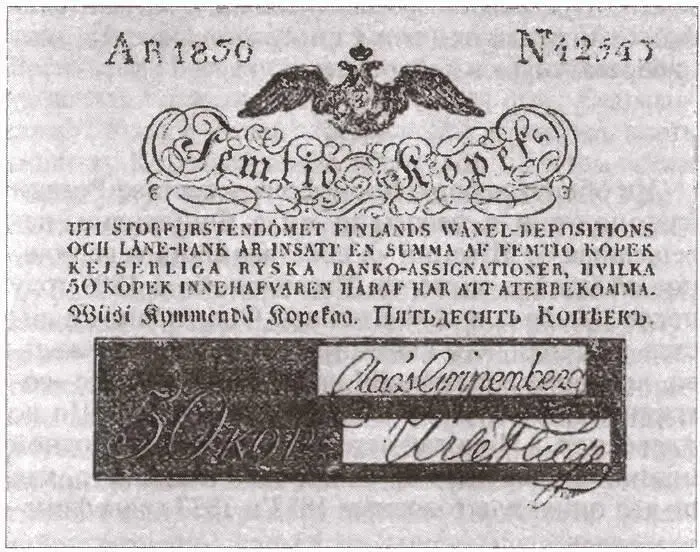 AR 1830 No 42545
Femtio Kopek
UTI STORFURSTENDÖMET FINLANDS WÄXEL-DEPOSITIONS
OCH LÅNE-BANK ÄR INSATT EN SUMMA AF FEMTIO KOPEK
KEJSERLIGA RYSKA BANKO-ASSIGNATIONER, HVILKA
50 KOPEK INNEHAFVAREN HÄRAF HAR ATT ÅTERBEKOMMA.
Wiisi Kymmendä Kopekaa. Пятьдесять Копѣекъ.
50 KOP.